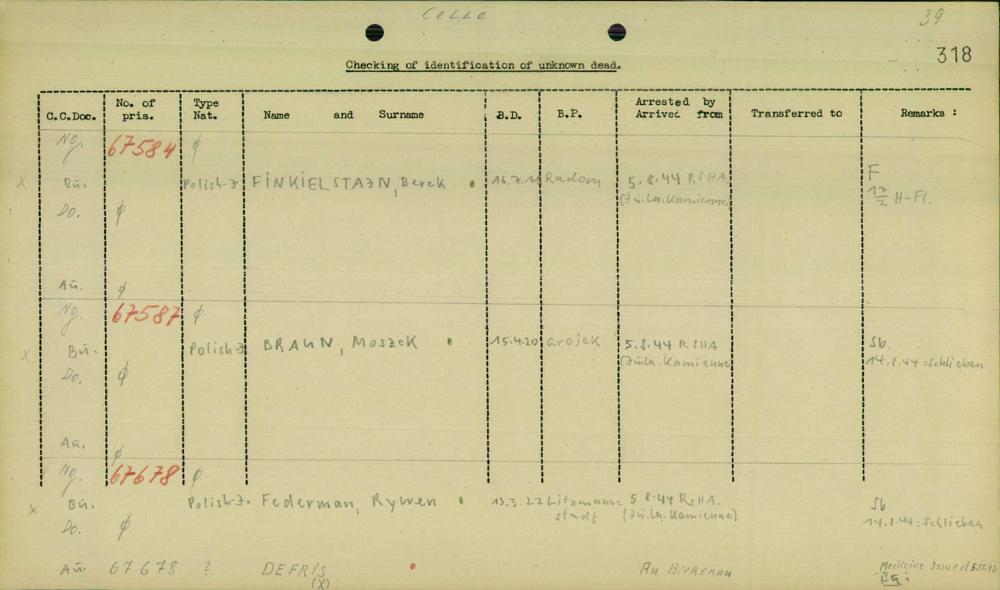 Celle 39
318
Checking of identification of unknown dead.
C.C.Doc. No. of pris. Type Nat. Name and Surname B.D. B.P. Arrested by Arrived from Transferred to Remarks :
Ng. 67584 ϕ
x Bü. Polish-J FINKIELSTAJN, Berek 16.7. Radom 5.8.44 RSHA F
(Zü.La. Kamienne) 17/2 H-Fl.
Do. ϕ
Aü. ϕ
Ng. 67587 ϕ
x Bü. Polish-J BRAUN, Moszek 15.4.20 Grojek 5.8.44 RSHA Sb.
(Zü.La. Kamienne) 14.8.44=Schlieben
Do. ϕ
Aü. ϕ
Ng. 67678 ϕ
x Bü. Polish-J. Federman, Rywen 13.3.22 Litzmann= 5.8.44 RSHA. Sb
stadt (Zü.La. Kamienne) 14.8.44=Schlieben
Do. ϕ
Aü. 67678 ? DEFRIS Au Birkenau Medicine Issued
(X)